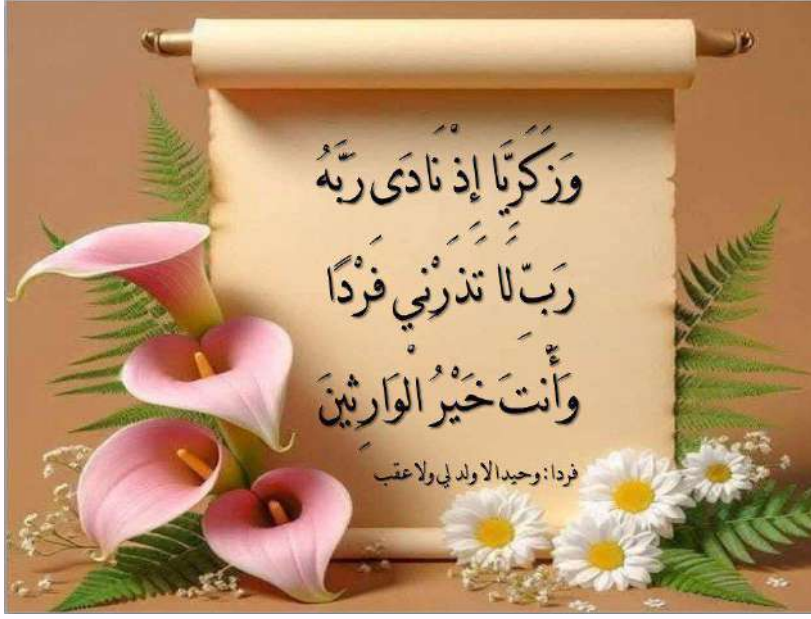 وَزَكَرِيَّا إِذْ نَادَى رَبَّهُ
رَبِّ لَا تَذَرْنِي فَرْدًا
وَأَنتَ خَيْرُ الْوَارِثِينَ
فردا : وحيدا لا ولد لي ولا عقب